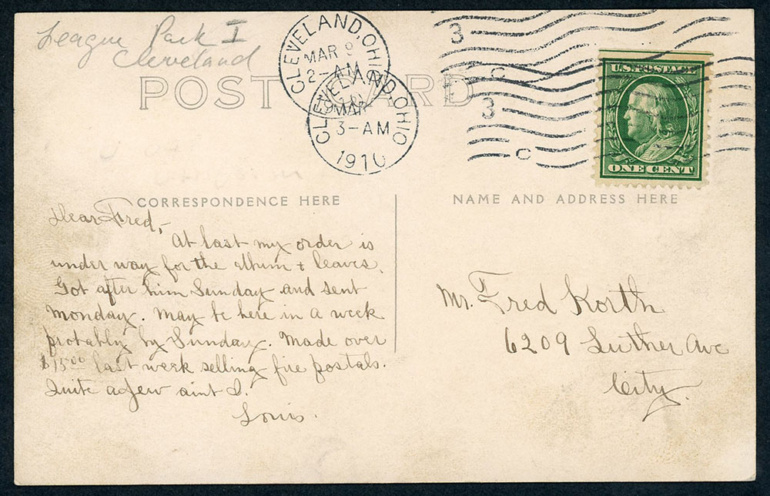 League Park I
Cleveland
POST CARD
CLEVELAND, OHIO
MAR 9
2-AM
CLEVELAND, OHIO
MAR
3-AM
1910
3
C
3
C
U.S. POSTAGE
ONE CENT
CORRESPONDENCE HERE
NAME AND ADDRESS HERE
Dear Fred,-
At last my order is
under way for the album + leaves.
Got after him Sunday and sent
Monday. May be here in a week
probably by Sunday. Made over
$15.00 last week selling fire postals.
Quite a few aint I.
Louis.
Mr. Fred Korth
6209 Luther Ave
City.